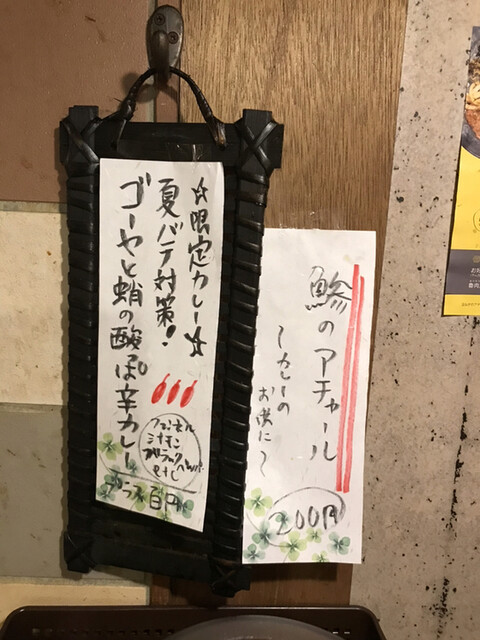 ☆限定カレー☆
夏バテ対策!
ゴーヤと蛸の酸ぱ辛カレー
フェンネル
シナモン
ブラックペッパー
etc
プラス百円
鯵のアチャール
〜カレーの
お供に〜
200円